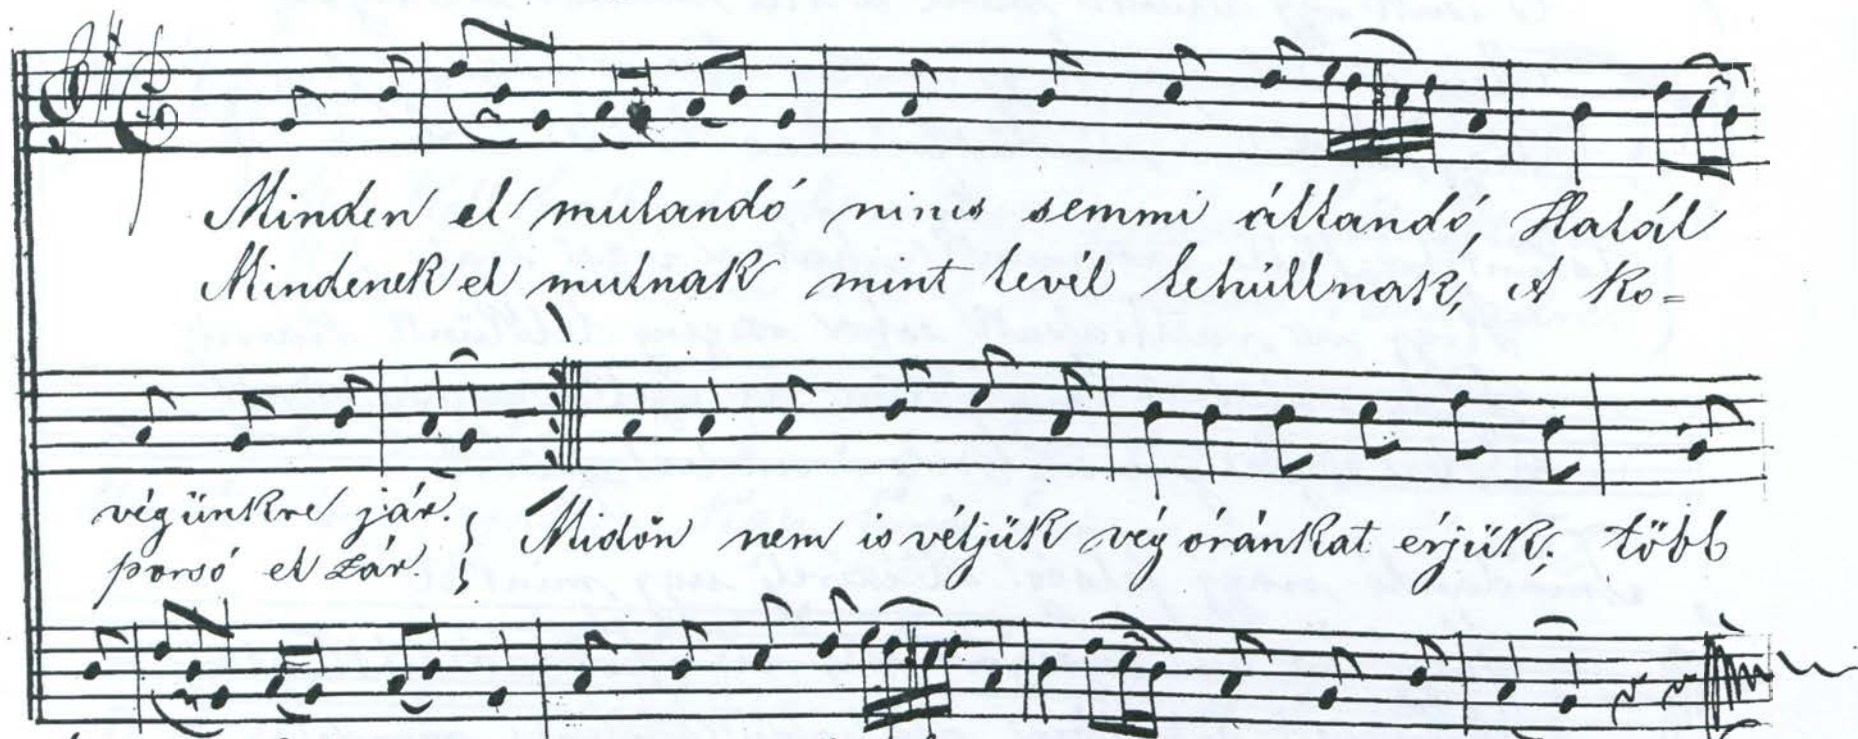 Minden el mulandó nincs semmi állandó, Halál
Mindenek el mulnak mint levél lehúllnak, A ko=
végünkre jár.
porsó el zár.
Midőn nem is véljük vég óránkat érjük; több